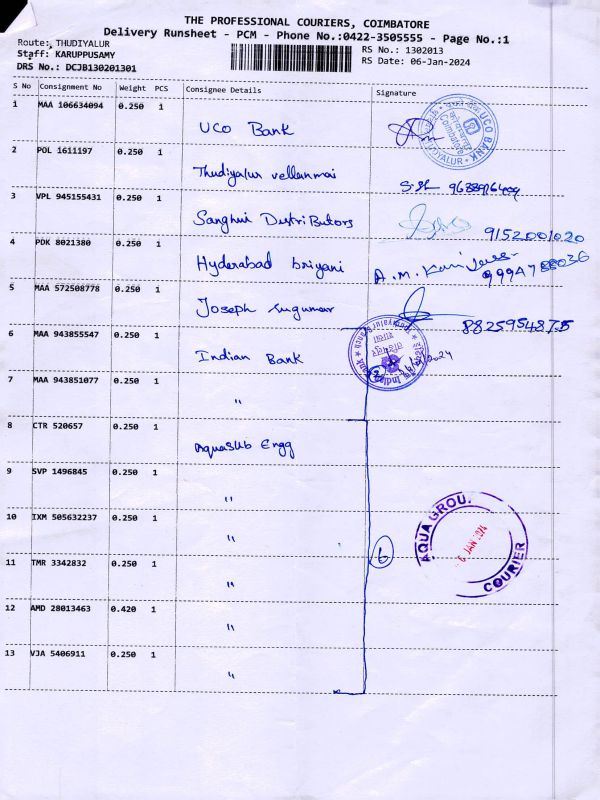 THE PROFESSIONAL COURIERS, COIMBATORE
Delivery Runsheet - PCM - Phone No.:0422-3505555 - Page No.:1
Route: THUDIYALUR
Staff: KARUPPUSAMY
DRS No.: DCJB130201301
RS No.: 1302013
RS Date: 06-Jan-2024
S No Consignment No Weight PCS Consignee Details Signature
1 MAA 106634094 0.250 1 UCO Bank
UCO BANK
THUDIYALUR
Coimbatore
2 POL 1611197 0.250 1 Thudiyalur vellanmai
3 VPL 945155431 0.250 1 Sanghui Distributors 9152001020
4 PDK 8021380 0.250 1 Hyderabad briyani
5 MAA 572508778 0.250 1 Joseph Sugumar 8825954875
6 MAA 943855547 0.250 1 Indian Bank
7 MAA 943851077 0.250 1 "
8 CTR 520657 0.250 1 Aquasub Engg
9 SVP 1496845 0.250 1 "
10 IXM 505632237 0.250 1 "
6
AQUA GROU
JAN
COURIER
11 TMR 3342832 0.250 1 "
12 AMD 28013463 0.420 1 "
13 VJA 5406911 0.250 1 "